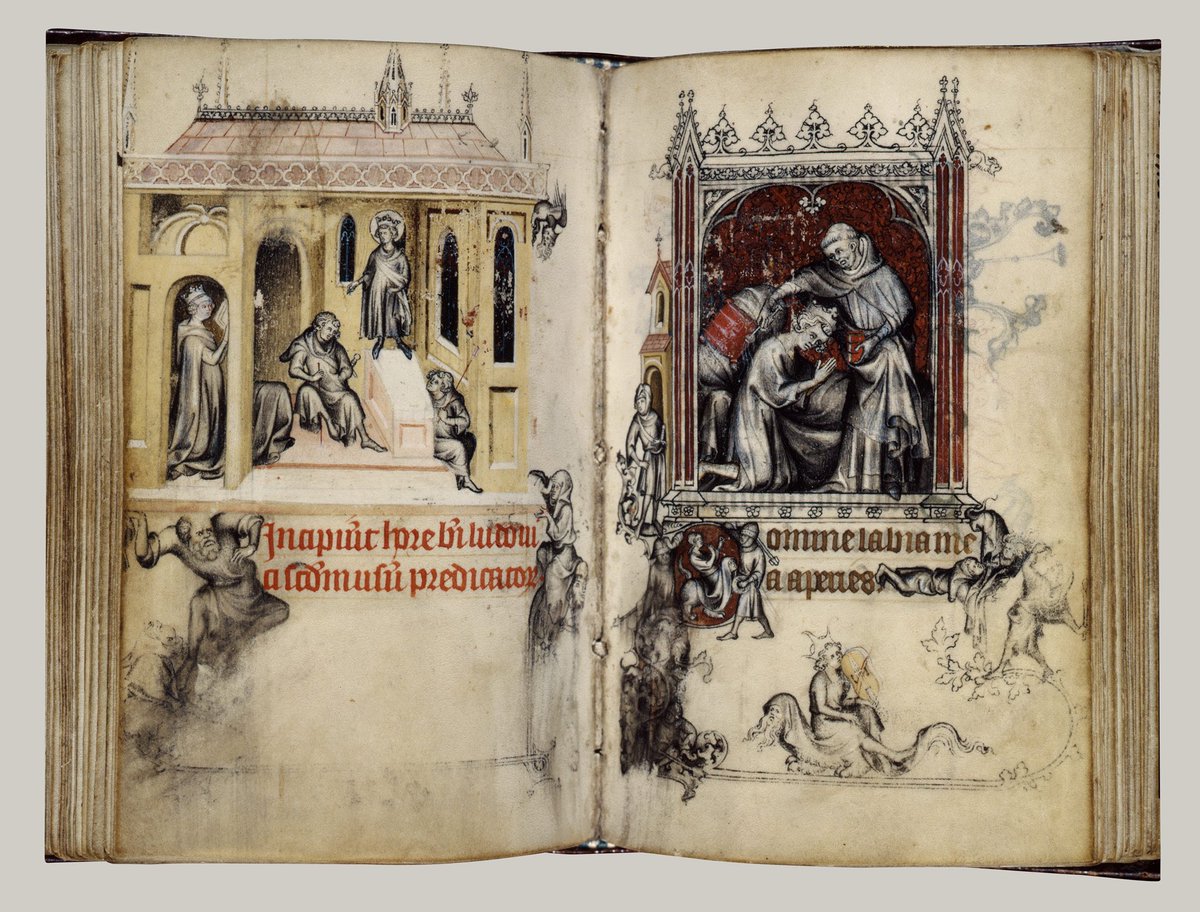 Incipiūt hore bt̄i ludoui
ci scd̄m usū predicator
Domine labia me
a aperies.